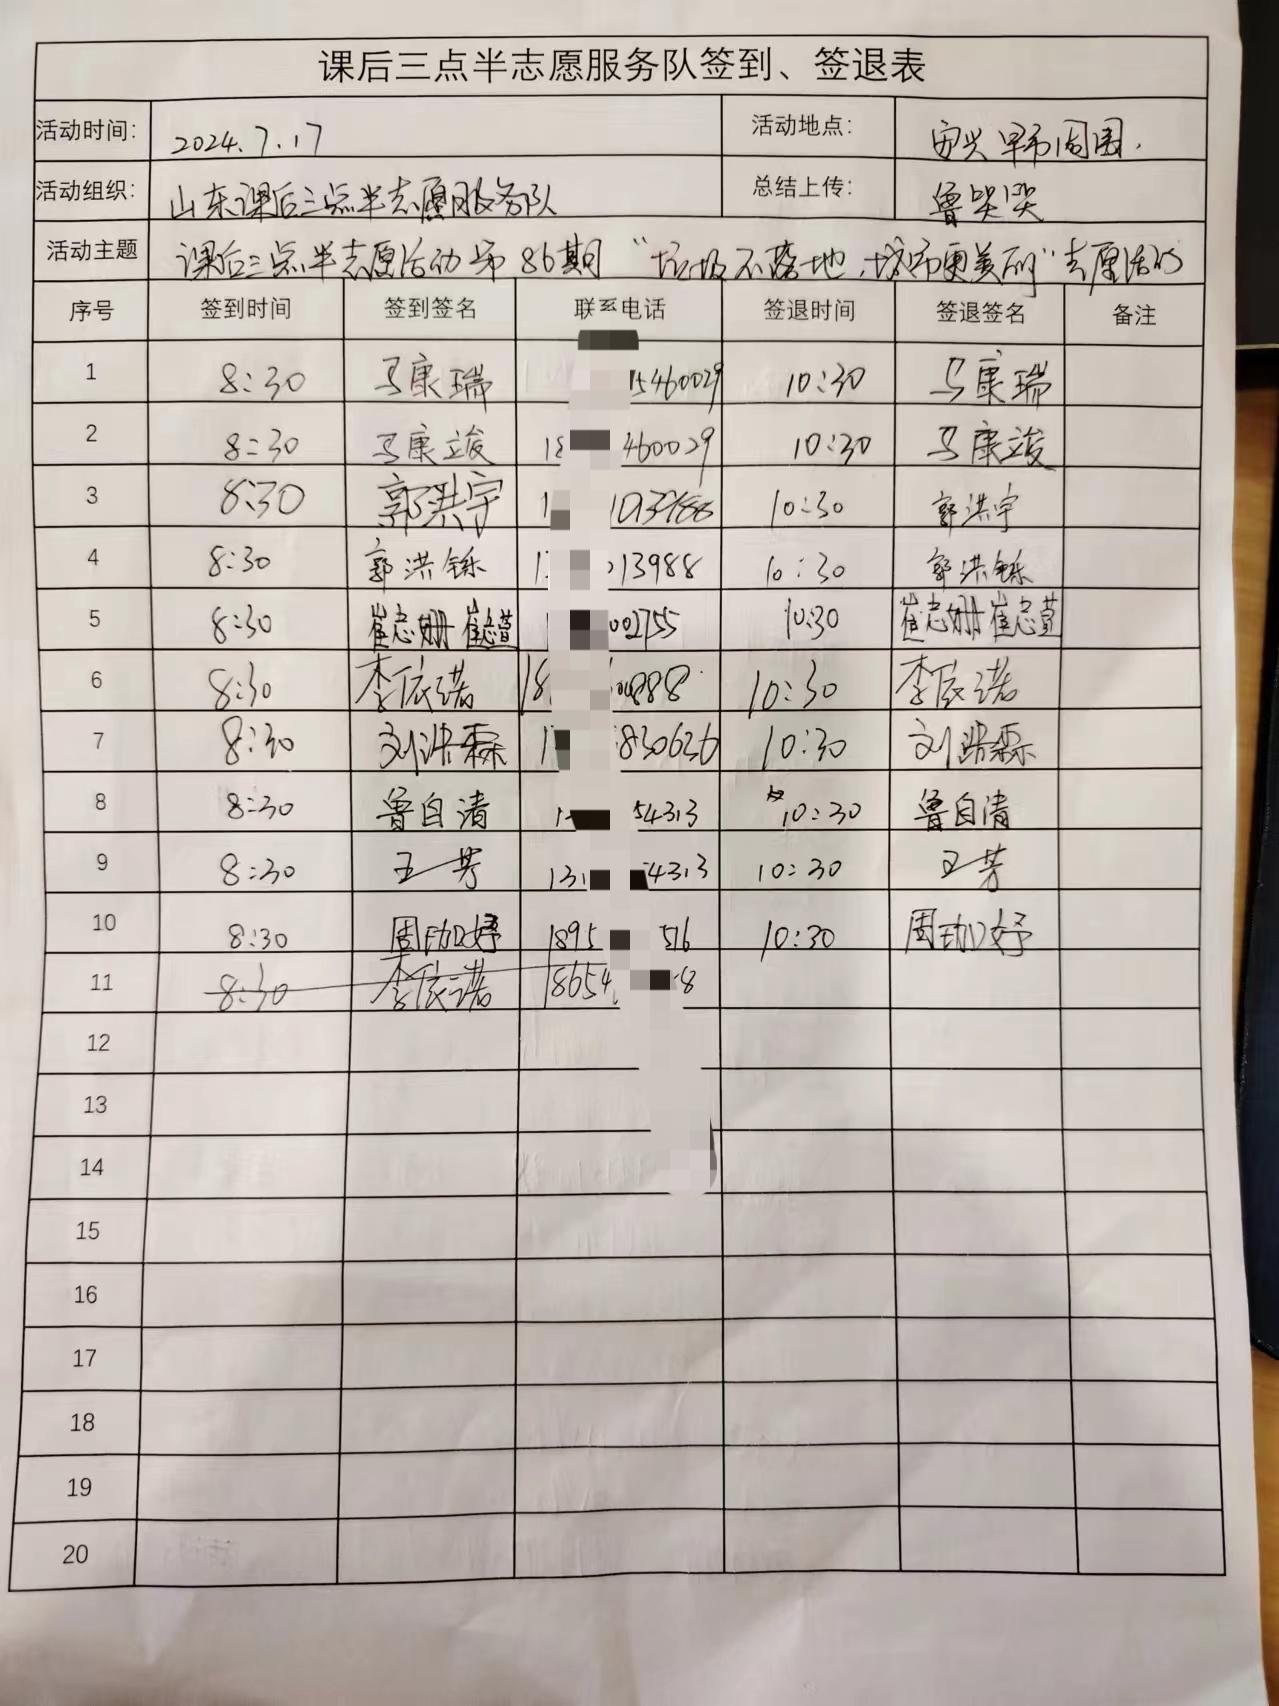 课后三点半志愿服务队签到、签退表
活动时间: 2024.7.17 活动地点: 安兴早市周围.
活动组织: 山东课后三点半志愿服务队 总结上传: 曾哭哭
活动主题 课后三点半志愿活动第86期 "垃圾不落地,城市更美丽"志愿活动
序号 签到时间 签到签名 联系电话 签退时间 签退签名 备注
1 8:30 马康瑞 15460029 10:30 马康瑞
2 8:30 马康竣 18 460029 10:30 马康竣
3 8:30 郭洪宇 1 10:30 郭洪宇
4 8:30 郭洪铄 13988 10:30 郭洪铄
5 8:30 崔志姗 崔志萱 002755 10:30 崔志姗 崔志萱
6 8:30 李依诺 18 888 10:30 李依诺
7 8:30 刘浩霖 1 830636 10:30 刘浩霖
8 8:30 鲁自清 1 54313 10:30 鲁自清
9 8:30 王芳 131 4313 10:30 王芳
10 8:30 周劭妤 1895 516 10:30 周劭妤
11 8:30 李依诺 18654 8
12
13
14
15
16
17
18
19
20